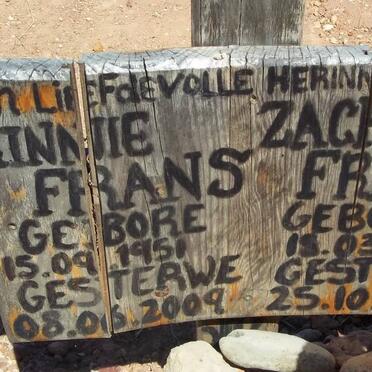 n LIEFdeVOLLE HERINN
INNIE ZAC
FRANS FR
GEBORE GEBO
15.09.1951 18.03
GESTERWE GEST
08.06.2009 25.10